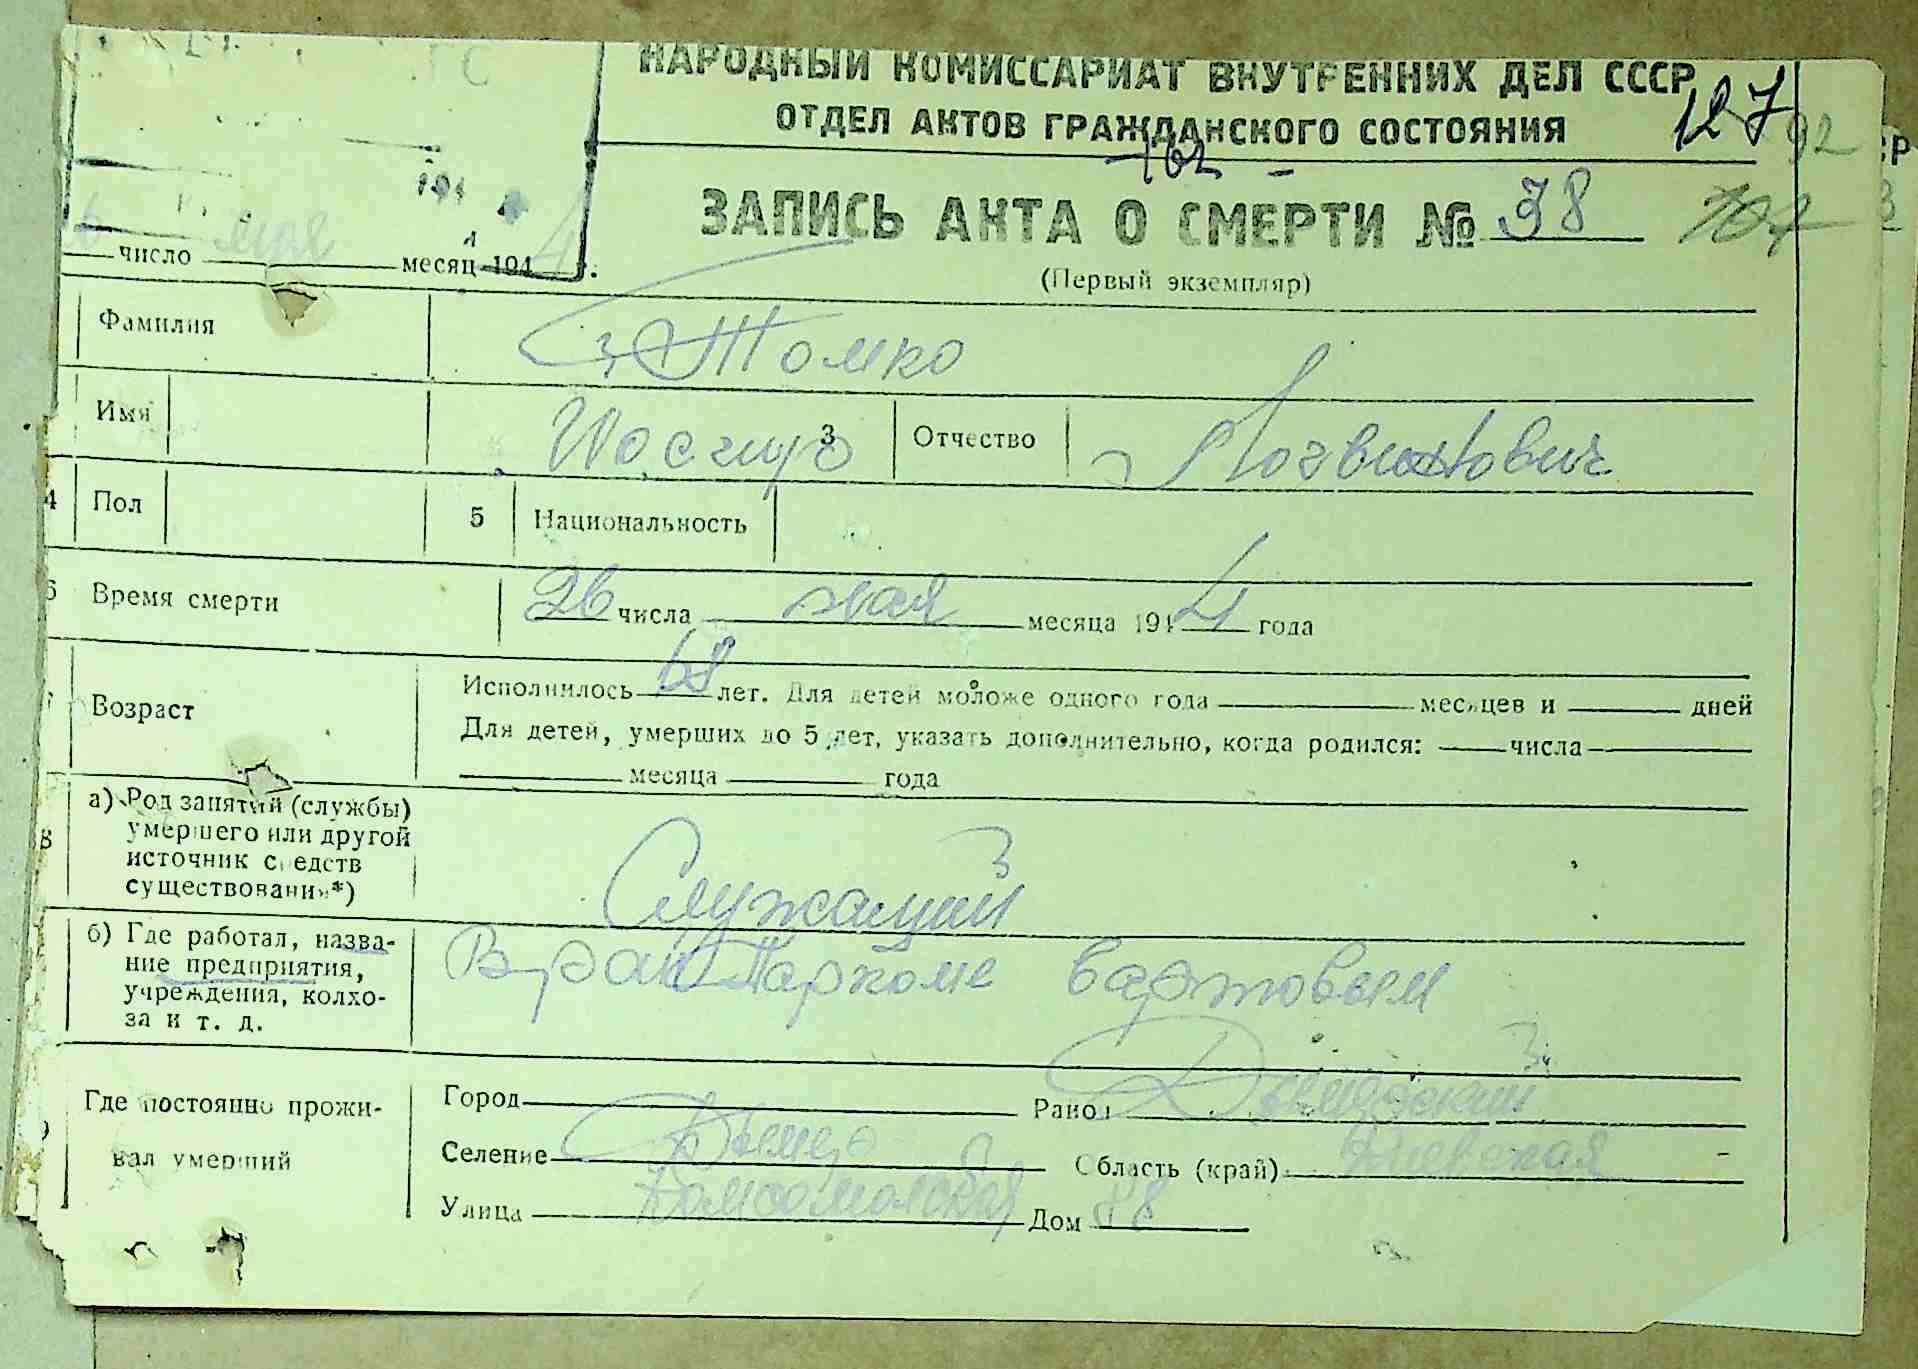 НАРОДНЫЙ КОМИССАРИАТ ВНУТРЕННИХ ДЕЛ СССР
127
ОТДЕЛ АКТОВ ГРАЖДАНСКОГО СОСТОЯНИЯ
92
162
ЗАПИСЬ АКТА О СМЕРТИ № 38
(Первый экземпляр)
194
число мая месяц 1944 г.
Фамилия Томко
Имя 3 Отчество Логвинович
4 Пол 5 Национальность
6 Время смерти 26 числа мая месяца 1944 года
Возраст Исполнилось 68 лет. Для детей моложе одного года месяцев и дней
Для детей, умерших до 5 лет, указать дополнительно, когда родился: числа
месяца года
8 а) Род занятий (службы)
умершего или другой
источник средств
существования*) Служащий
б) Где работал, назва-
ние предприятия,
учреждения, колхо-
за и т. д.
В рай Парткоме вартовым
9 Где постоянно прожи-
вал умерший
Город Район Дымерский
Селение Дымер Область (край) Киевская
Улица Комсомольская Дом 88